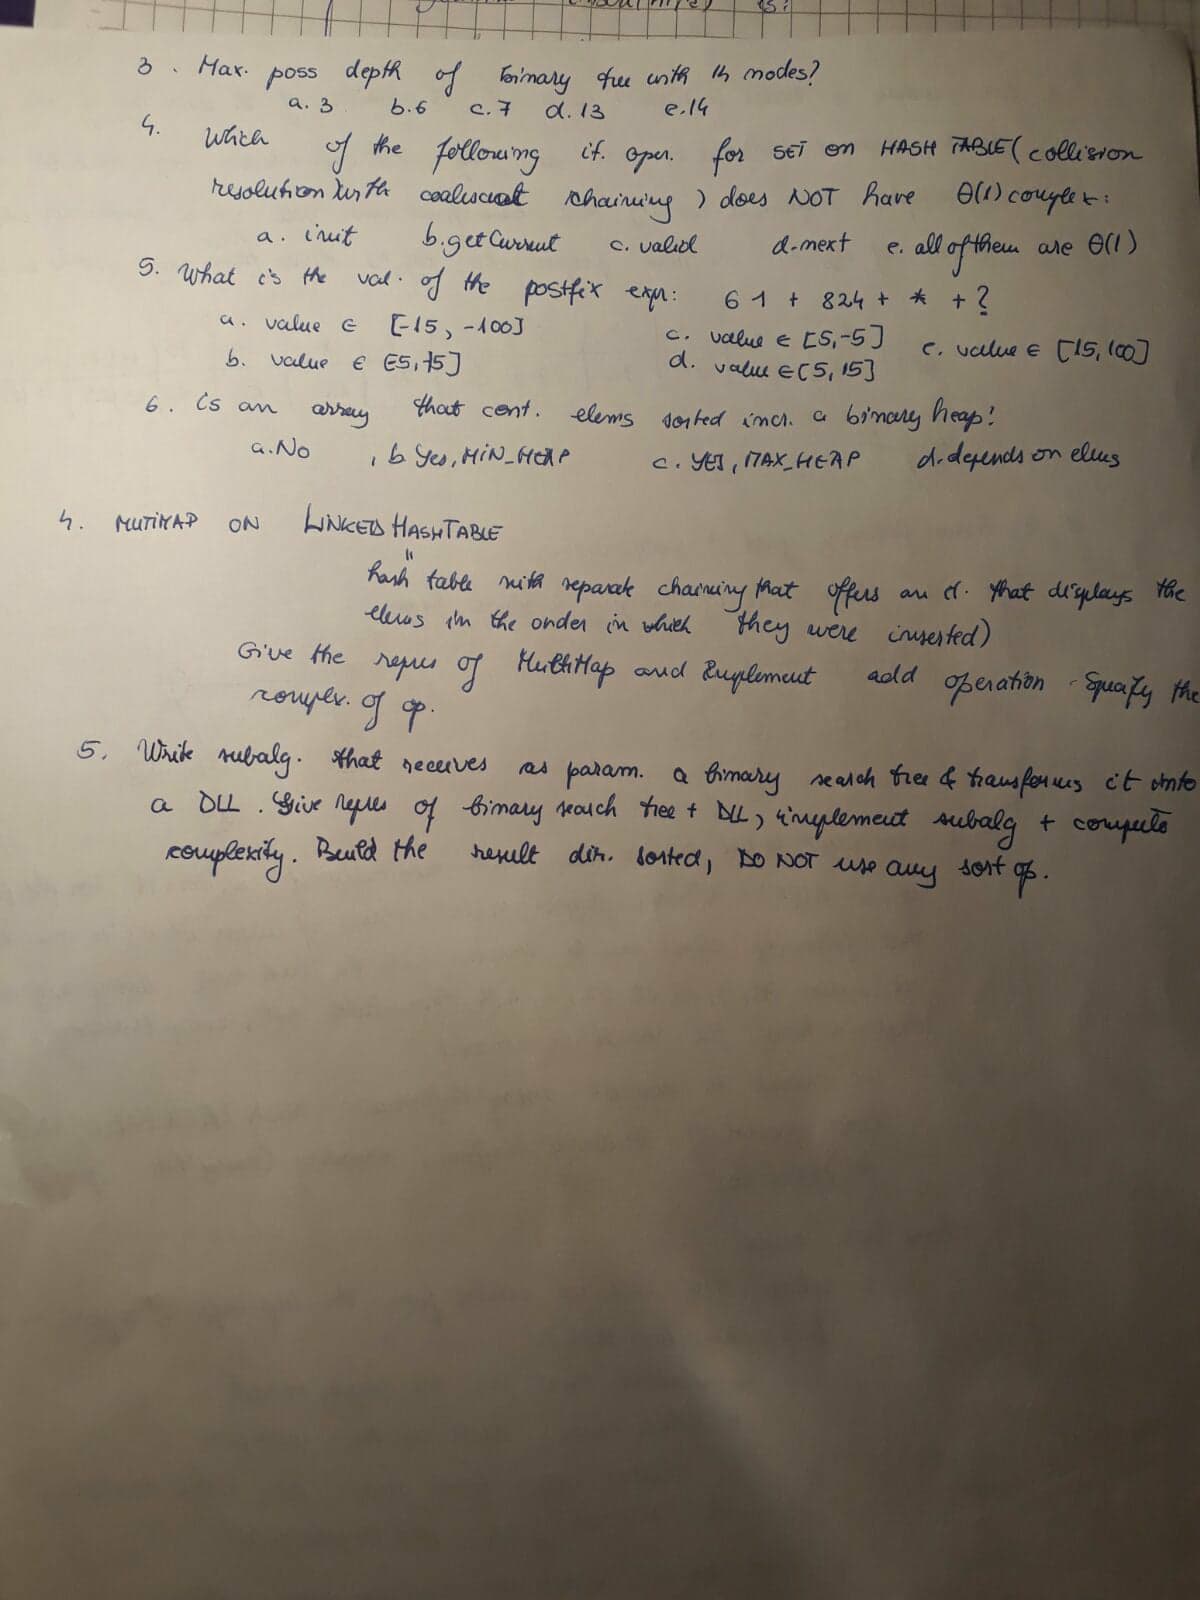 is?
3. Max. poss depth of binary tree with 14 nodes?
a. 3 b. 6 c. 7 d. 13 e. 14
4. Which of the following it. oper. for SET on HASH TABLE (collision
resolution with coalescent chaining) does NOT have Θ(1) complex:
a. init b. getCurrent c. valid d. next e. all of them are Θ(1)
5. What is the val. of the postfix expr: 6 1 + 8 2 4 + * + ?
a. value ∈ [-15, -100] c. value ∈ [5, -5] e. value ∈ [15, 100]
b. value ∈ [-5, 15] d. value ∈ [5, 15]
6. is an array that cont. elems sorted incr. a binary heap?
a. No , b Yes, MIN_HEAP c. YES, MAX_HEAP d. depends on elems
4. MUTIMAP ON LINKED HASHTABLE
"
hash table with separate chaining that offers an it. that displays the
elems in the order in which they were inserted)
Give the repres of MultiMap and Implement add operation - Specify the
complex. of op.
5. Write subalg. that receives as param. a binary search tree & transforms it into
a DLL. Give repres of binary search tree + DLL, implement subalg + compute
complexity. Build the result dir. sorted, DO NOT use any sort op.